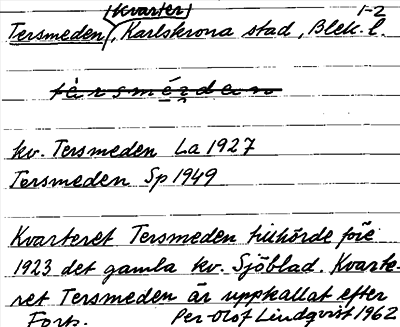 (kvarter) 1-2
Tersmeden, Karlskrona stad, Blek. l.
tèrsmé̱zdән
kv. Tersmeden La 1927
Tersmeden Sp 1949
Kvarteret Tersmeden tillhörde före
1923 det gamla kv. Sjöblad. Kvarte-
ret Tersmeden är uppkallat efter
Forts. Per-Olof Lindqvist 1962